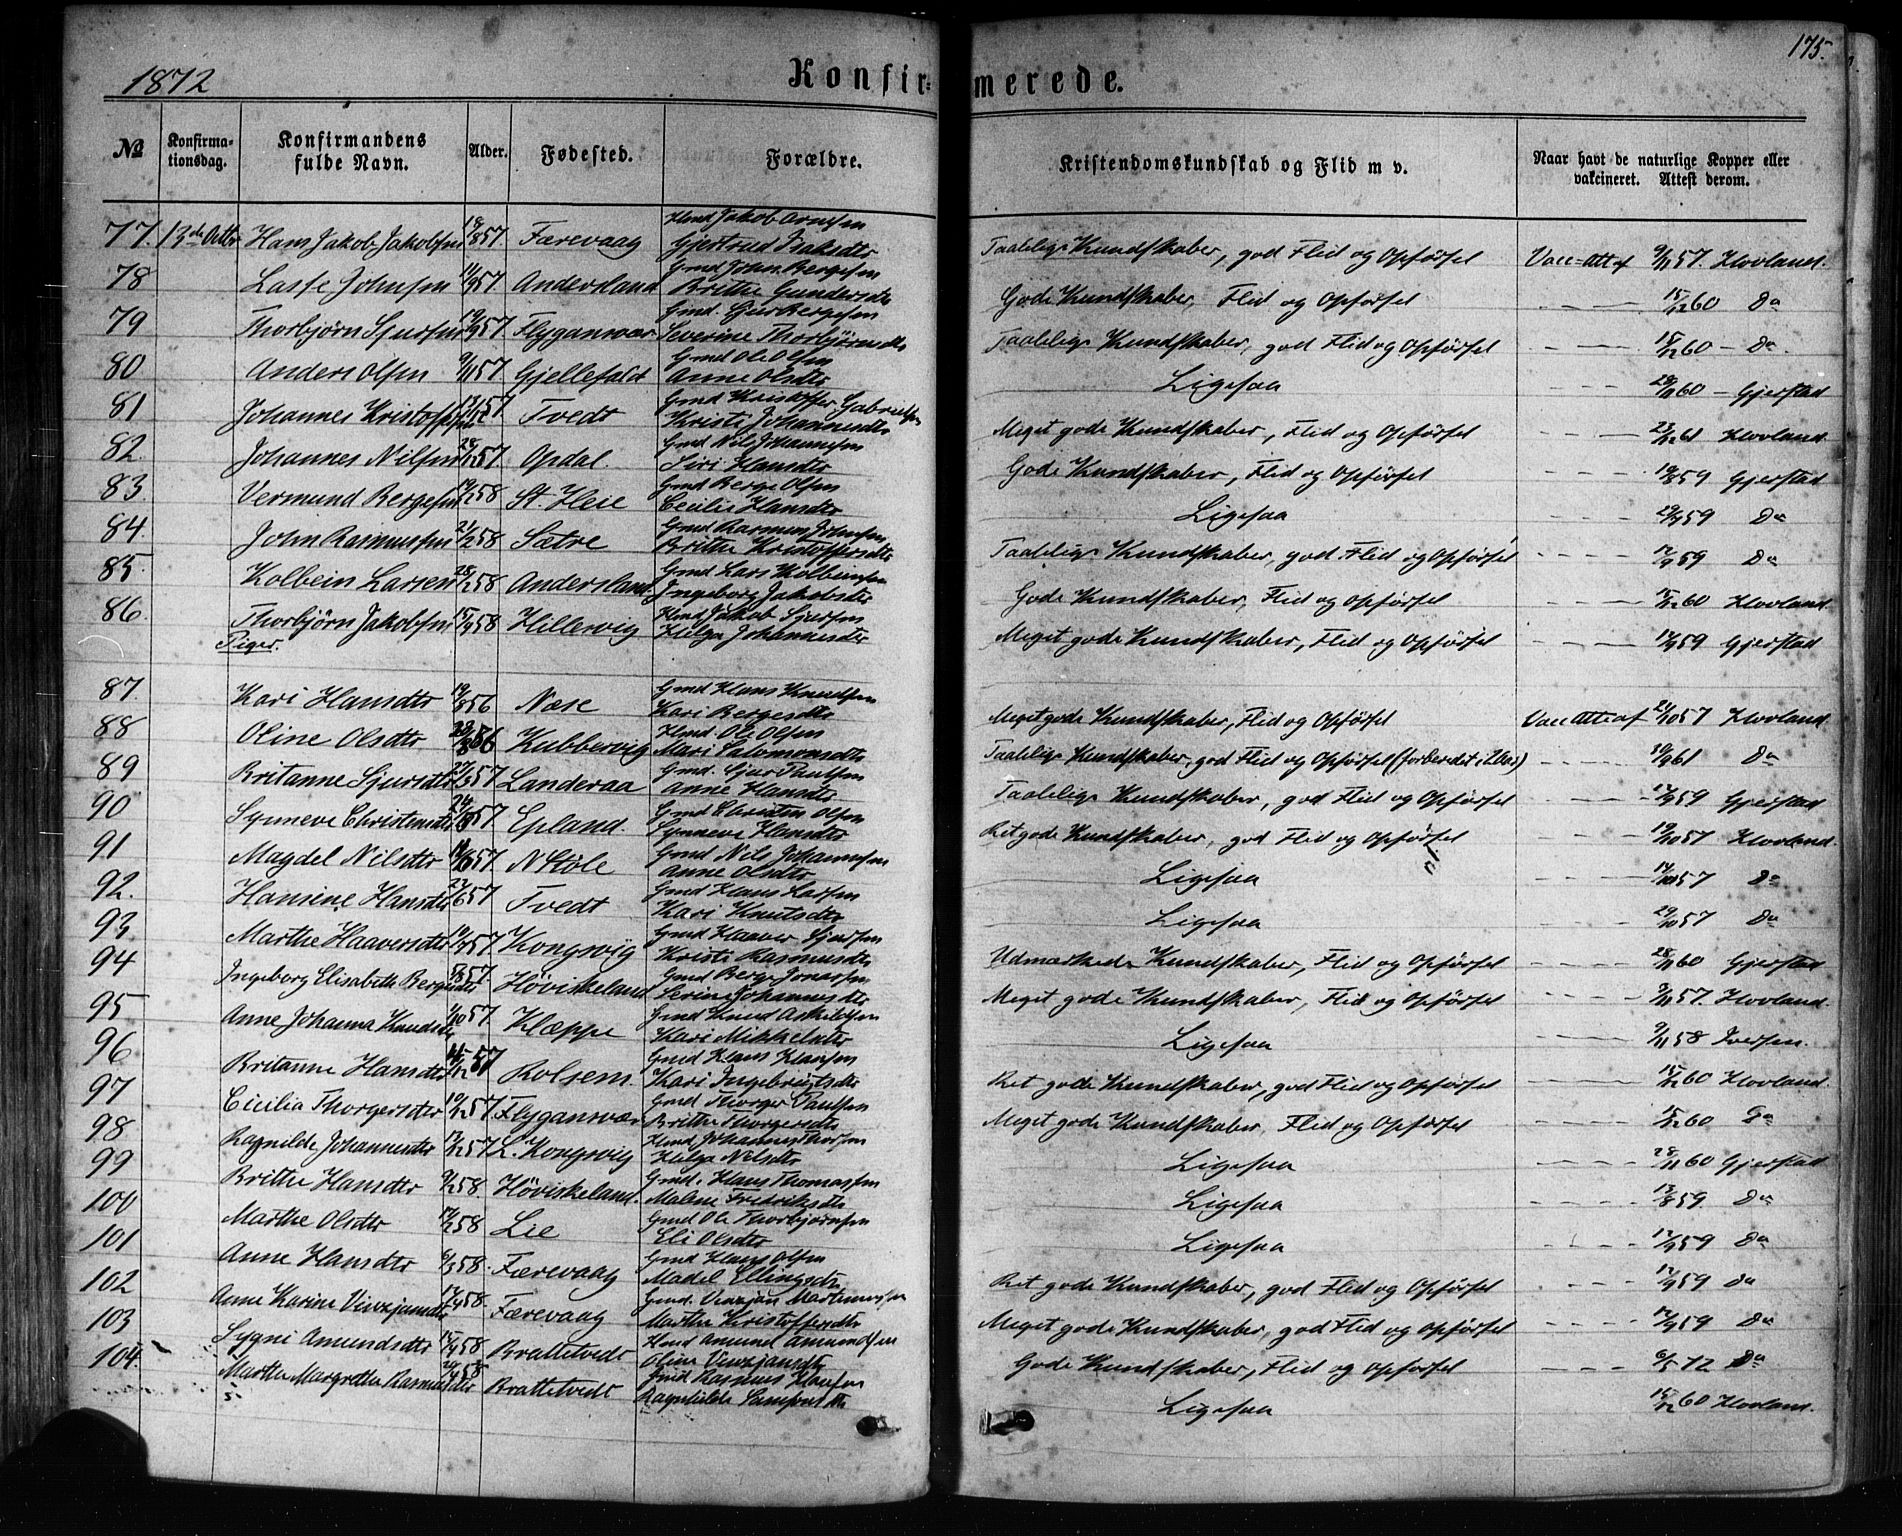 1872 Konfirmerede. 175.
№ Konfirmationsdag. Konfirmandens fulde Navn. Alder. Fødested. Forældre. Kristendomskundskab og Flid m v. Naar havt de naturlige Kopper eller vakcineret. Attest derom.
77. 13de Octbr Hans Jakob Jakobsen 18/8 57 Færevaag Jakob Arnesen Gjertrud Isaksdtr Taalelige Kundskaber, god Flid og Opførsel Vacc-Att af 9/11 57. Hovland.
78 Lasse Johnsen 11/9 57 Andersland Gmd John Bergesen Brithe Gundersdtr Gode Kundskaber, Flid og Opførsel 15/12 60 Do
79 Thorbjørn Sjursen 19/9 57 Flygansvær Gmd. Sjur Bergesen Severine Thorbjørnsdtr Taalelige Kundskaber, god Flid og Opførsel 15/12 60 - Do.
80 Anders Olsen 9/11 57 Gjellefald Gmd Ole Olsen Anne Olsdtr Ligesaa 28/11 60 - Gjerstad
81 Johannes Kristoffersen 57 Tvedt Gmd Kristoffer Gabrielsen Kristi Johannesdtr Meget gode Kundskaber, Flid og Opførsel 23/12 61 Hovland
82. Johannes Nilsen 28/12 57. Opdal. Gmd Nils Johannesen Siri Hansdtr Gode Kundskaber, Flid og Opførsel 19/8 59 Gjerstad
83 Vermund Bergesen 19/2 58 St. Heie Gmd Berge Olsen Cecilie Hansdtr Ligesaa 59 Do
84. John Rasmussen 21/2 58 Sætre Gmd Rasmus Johnsen Brithe Kristoffersdtr Taalelige Kundskaber, god Flid og Opførsel 12/9 59 Do
85. Kolbein Larsen 28/2 58 Andersland. Gmd Lars Kolbeinsen Ingeborg Jakobsdtr Gode Kundskaber, Flid og Opførsel 15/12 60 Hovland.
86. Thorbjørn Jakobsen 15/4 58 Hillesvig Jakob Sjursen Helga Johannesdtr Meget gode Kundskaber, Flid og Opførsel 12/9 59 Gjerstad
Piger.
87. Kari Hansdtr 19/8 56 Næse Gmd Hans Knudsen Kari Bergesdtr Meget gode Kundskaber, Flid og Opførsel Vacc Att af 21/10 57 Hovland.
88 Oline Olsdtr 56 Kubbervig Ole Olsen Mari Salomonsdtr Taalelige Kundskaber, god Flid og Opførsel (forberedt i 2 Aar) 61 Do
89 Britanne Sjursdtr 27/3 57 Landeraa Gmd. Sjur Paulsen Anne Hansdtr Taalelige Kundskaber, god Flid og Opførsel 12/9 59 Gjerstad
90 Synneve Christensdtr 57 Epland. Gmd Christen Olsen Synneve Hansdtr Ret gode Kundskaber, god Flid og Opførsel 19/10 57 Hovland.
91 Magdel Nilsdtr 57. N Støle Gmd Nils Johannesen Anne Olsdtr Ligesaa 17/10 57 Do
92. Hansine Hansdtr 27/6 57 Tvedt Gmd Hans Larsen Kari Knutsdtr Ligesaa 29/10 57 Do
93 Marthe Haaversdtr 57 Kongsvig Gmd Haaver Sjursen Kristi Rasmusdtr Udmærkede Kundskaber, Flid og Opførsel 28/11 60 Gjerstad
94 Ingeborg Elisabeth Bergesdtr 5/8 57. Høviskeland Gmd Berge Jonassen Serine Johannesdtr Meget gode Kundskaber, Flid og Opførsel 9/11 57 Hovland
95 Anne Johanna Knudsdtr 1/10 57 Klæppe Gmd Knud Askildsen Kari Mikkelsdtr Ligesaa 9/11 58 Iversen.
96 Britanne Hansdtr 57 Rolsem. Gmd Hans Hansen Kari Ingebrigtsdtr Ret gode Kundskaber, god Flid og Opførsel 15/12 60 Hovland.
97 Cicilia Thorgersdtr 10/12 57. Flygansvær Gmd Thorger Paulsen Brithe Thorgersdtr Meget gode Kundskaber, Flid og Opførsel 15/12 60 Do
98 Ragnilde Johannesdtr 17/12 57 L. Kongsvig Johannes Thorsen Helga Nilsdtr Ligesaa 28/11 60 Gjerstad
99 Brithe Hansdtr 9/2 58. Høviskeland. Gmd. Hans Thomassen Malene Fredriksdtr Ligesaa 13/8 59. Do
100 Marthe Olsdtr 12/2 58 Lie Gmd Ole Thorbjørnsen Eli Olsdtr Ligesaa 12/9 59 Do
101 Anne Hansdtr 6/3 58. Færevaag Gmd Hans Olsen Madel Ellingsdtr Ret gode Kundskaber, god Flid og Opførsel 12/9 59 Do
102 Anne Karine Vinzjansdtr 17/4 58. Færevaag Gmd. Vinzjan Martinussen Marthe Kristoffersdtr Meget gode Kundskaber, god Flid og Opførsel 12/9 59 Do
103 Sygni Amundsdtr 15/4 58 Brattetvedt Amund Amundsen Oline Vinzjansdtr Gode Kundskaber, Flid og Opførsel 6/5 72 Do
104 Marthe Margrethe Rasmusdtr 24/4 58 Brattetvedt Gmd Rasmus Hansen Ragnhilde Ligesaa 15/12 60 Hovland.